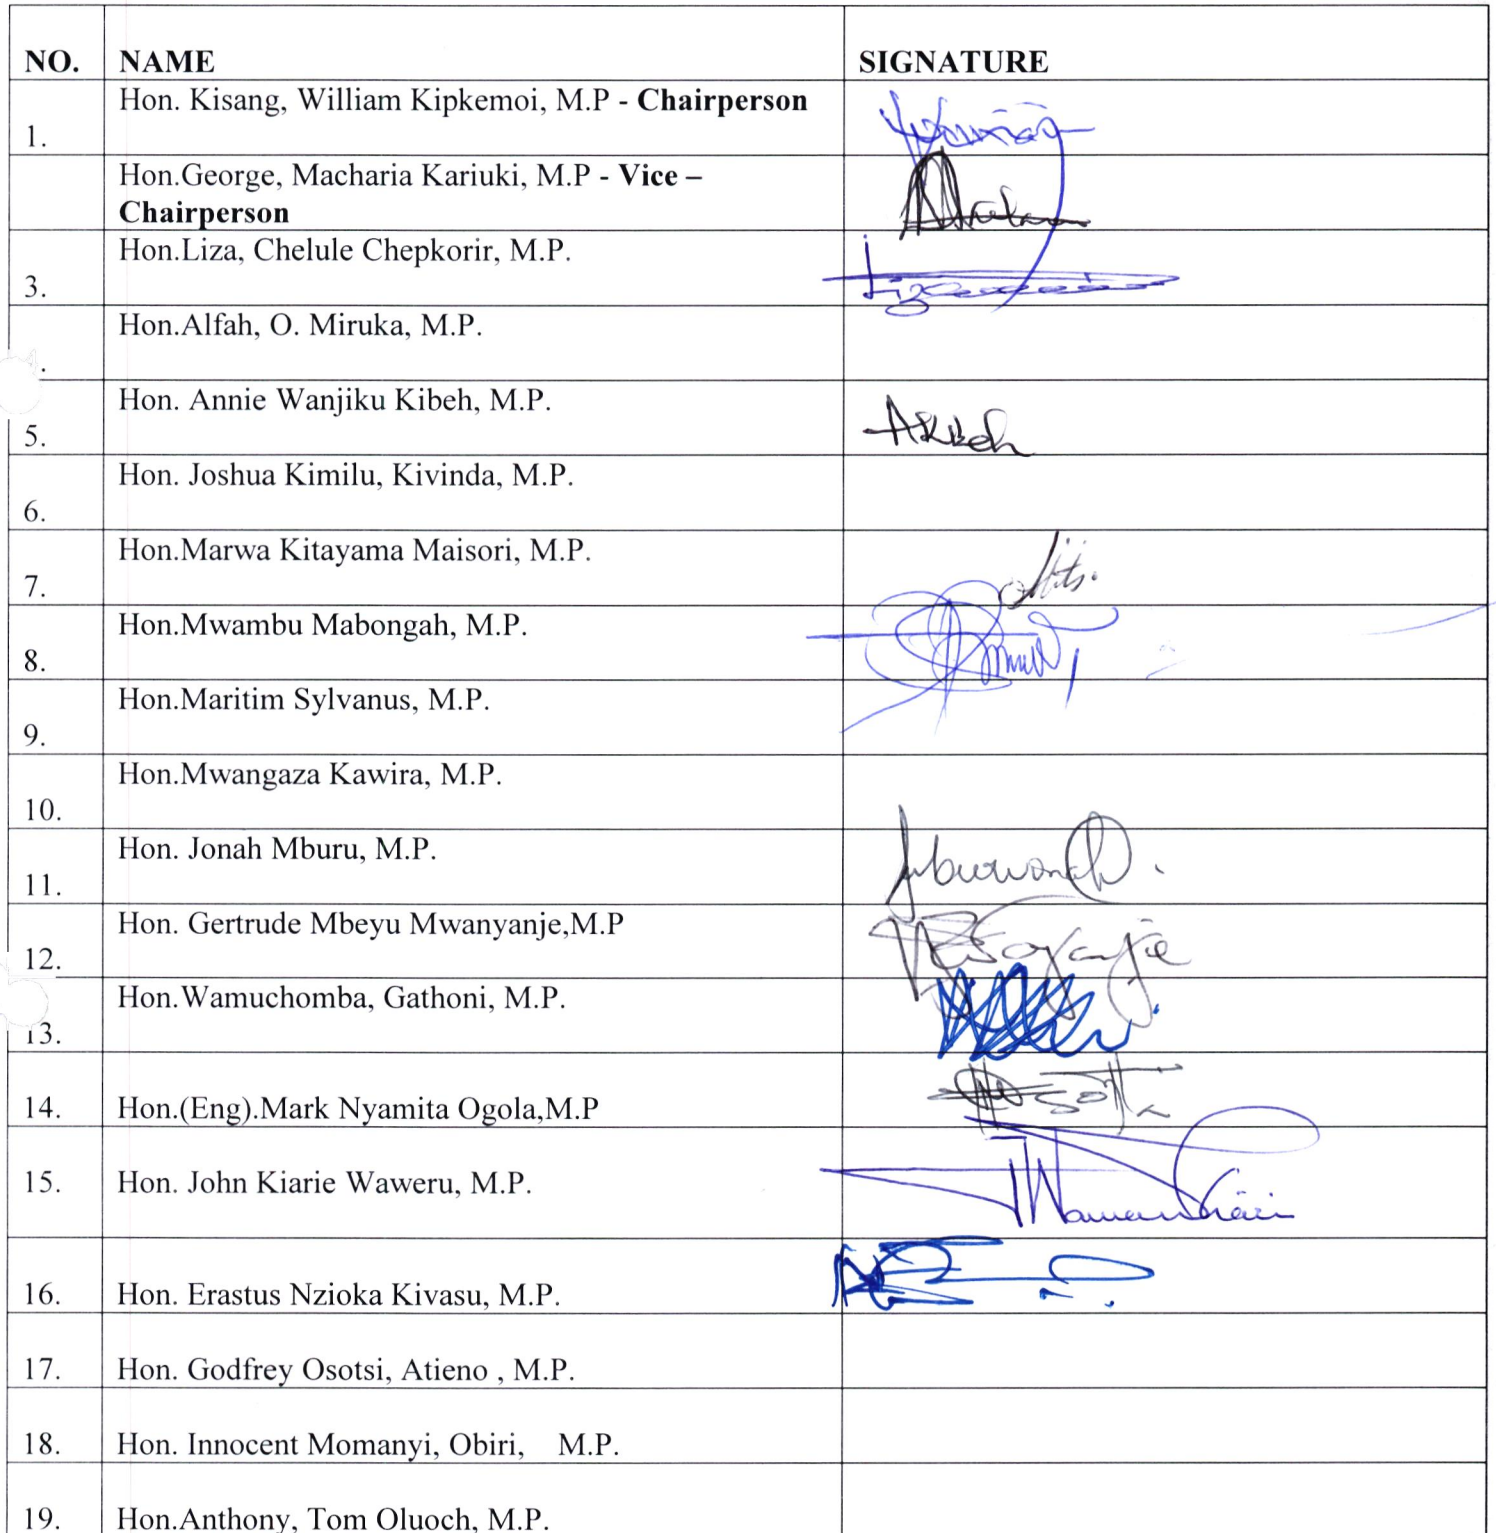 NO. NAME SIGNATURE
Hon. Kisang, William Kipkemoi, M.P - Chairperson
1.
Hon.George, Macharia Kariuki, M.P - Vice –
Chairperson
Hon.Liza, Chelule Chepkorir, M.P.
3.
Hon.Alfah, O. Miruka, M.P.
.
Hon. Annie Wanjiku Kibeh, M.P.
5. AKibeh
Hon. Joshua Kimilu, Kivinda, M.P.
6.
Hon.Marwa Kitayama Maisori, M.P.
7.
Hon.Mwambu Mabongah, M.P.
8.
Hon.Maritim Sylvanus, M.P.
9.
Hon.Mwangaza Kawira, M.P.
10.
Hon. Jonah Mburu, M.P.
11.
Hon. Gertrude Mbeyu Mwanyanje,M.P
12.
Hon.Wamuchomba, Gathoni, M.P.
13.
14. Hon.(Eng).Mark Nyamita Ogola,M.P
15. Hon. John Kiarie Waweru, M.P.
16. Hon. Erastus Nzioka Kivasu, M.P.
17. Hon. Godfrey Osotsi, Atieno , M.P.
18. Hon. Innocent Momanyi, Obiri, M.P.
19. Hon.Anthony, Tom Oluoch, M.P.